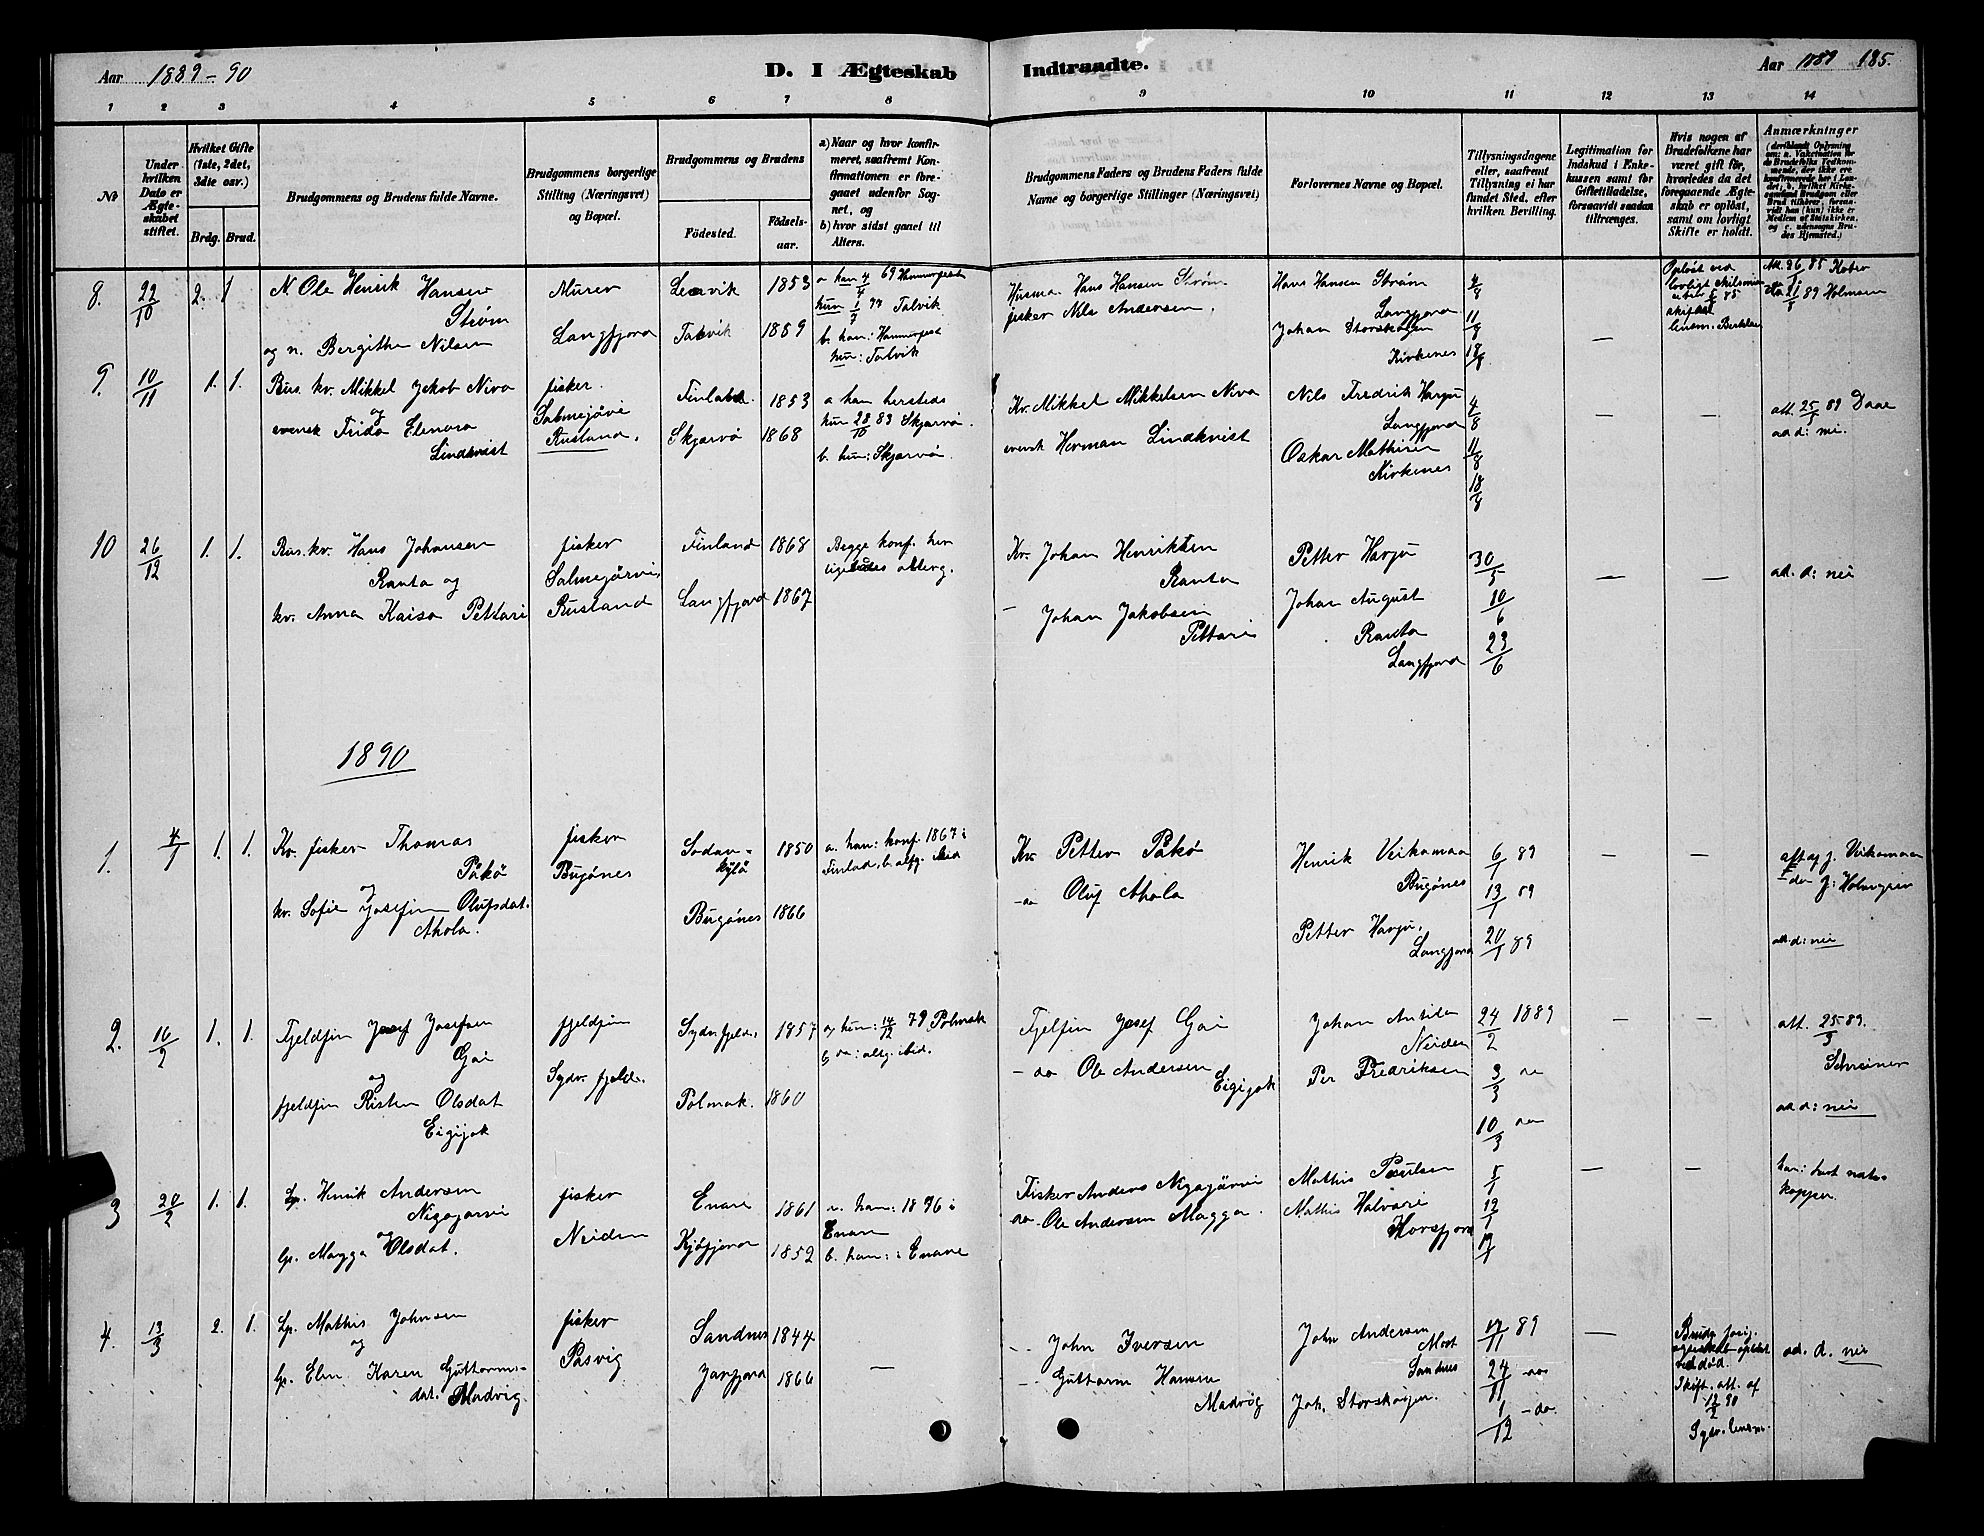 Aar 1889-90
D. I Ægteskab Indtraadte.
Aar 1889 185.
1 2 3 4 5 6 7 8 9 10 11 12 13 14
№
Under hvilken Dato er Ægteskabet stiftet.
Hvilket Gifte (1ste, 2det, 3die osv.)
Brdg. Brud.
Brudgommens og Brudens fulde Navne.
Brudgommens borgerlige Stilling (Næringsvei) og Bopæl.
Brudgommens og Brudens
Födested. Födselsaar.
a) Naar og hvor konfirmeret, saafremt Konfirmationen er foregaaet udenfor Sognet, og
b) hvor sidst gaaet til Alters.
Brudgommens Faders og Brudens Faders fulde Navne og borgerlige Stillinger (Næringsvei)
Forlovernes Navne og Bopæl.
Tillysningsdagene eller, saafremt Tillysning ei har fundet Sted, efter hvilken Bevilling.
Legitimation for Indskud i Enkekassen samt for Giftetilladelse, forsaavidt saadan tiltrænges.
Hvis nogen af Brudefolkene har været gift för, hvorledes da det foregaaende Ægteskab er oplöst, samt om lovligt Skifte er holdt.
Anmærkninger
8. 22/10 2. 1
N. Ole Henrik Hansen
Strøm
og n. Bergithe Nilsen
Murer
Langfjord
Leavik 1853
Talvik 1859
a han 4/4 69 Hammerfest
hun 1/9 77 Talvik
b. han: Hammerfest
hun: Talvik
Husma. Hans Hansen Strøm
fisker Nils Andersen.
Hans Hansen Strøm
Langfjord
Johan Storskogen
Kirkenes
4/8
11/8
18/8
—
9. 10/11 1. 1.
Rus. kv. Mikkel Jakob Niva
og
svensk Frida Elenora
Lindkvist
fisker.
Salmejävi
Rusland.
Finland. 1853
Skjærvö 1868
a han hersteds
hun 28/10 83 Skjærvö.
b. hun: Skjærvö.
Kv. Mikkel Mikkelsen Niva
svensk Herman Lindkvist
Nils Fredrik Harju
Langfjord
Oskar Mathisen
Kirkenes
4/8
11/8
18/8
— —
att. 25/5 89 Daae
ad d: nei.
10 26/12 1. 1.
Rus. kv. Hans Johansen
Ranta og
kv. Anna Kaisa Pettari
fisker
Salmejärvi,
Rusland
Finland 1868
Langfjord 1867
Begge konf. her
ligeledes alterg.
Kv. Johan Henriksen
Ranta
— Johan Jakobsen
Pettari
Petter Harju
Johan August
Ranta
Langfjord
30/5
10/6
23/6
— —
ad. d: nei
1890
1. 4/1 1. 1.
Kv. fisker Thomas
Päkö
og
kv. Sofie Josefin Olufsdat.
Ahola.
fisker
Bugönes
Sodan-
kylä 1850
Bugönes 1866
a. han: konf. 1867 i
Finland, b. altg. ibid
Kv. Petter Päkö
— do Oluf Ahola
Henrik Veikamaa
Bugönes
Petter Harju,
Langfjord
6/1 89
13/1 89
20/1 89
— —
att af J. Veikamaa
J: Holmgren
ad d: nei
2. 16/2 1. 1.
Fjeldfin Josef Josefsen
Gai
og
fjeldfin Risten Olsdat
Eigijok
fjeldfin
Sydv. fjeld.
Sydv. fjeld. 1857
Polmak. 1860
a) hun: 14/12 79 Polmak
b do: altg. ibid.
Fjelfin Josef Gai
— do Ole Andersen
Eigijok
Johan Antilla
Neiden
Per Fredriksen
24/2 1889
3/3 do
10/3 do
att. 25/3 89.
Schreiner
ad d: nei
3 20/2 1. 1.
Lp. Henrik Andersen
Nigajarvi
og
Lp. Magga Olsdat.
fisker
Neiden
Enare 1861
Kjöfjord 1852
a. han: 1876 i
Enare
b. han: i Enare
Fisker Anders Nigajärvi
do - Ole Andersen Magga.
Mathis Paulsen
Mathis Halvari
Korsfjord
5/1
12/1
19/1
— —
han: havt nat.
kopper.
4. 13/3 2. 1.
Lp. Mathis Johnsen
og
Lp. Elen Karen Guttorms-
dat. Madvig.
fisker
Pasvig
Sandnes 1844
Jarfjord 1866
—
John Iversen
Guttorm Hansen
Madvig
John Andersen
Mort
Sandnes
Joh. Storskogen.
17/11 89
24/11 - do
1/12 - do.
—
Brudg. forrig.
ægteskab opløst
ved død.
Skift. att. af
12/2 90
Sydv. lensm.
ad. d. nei